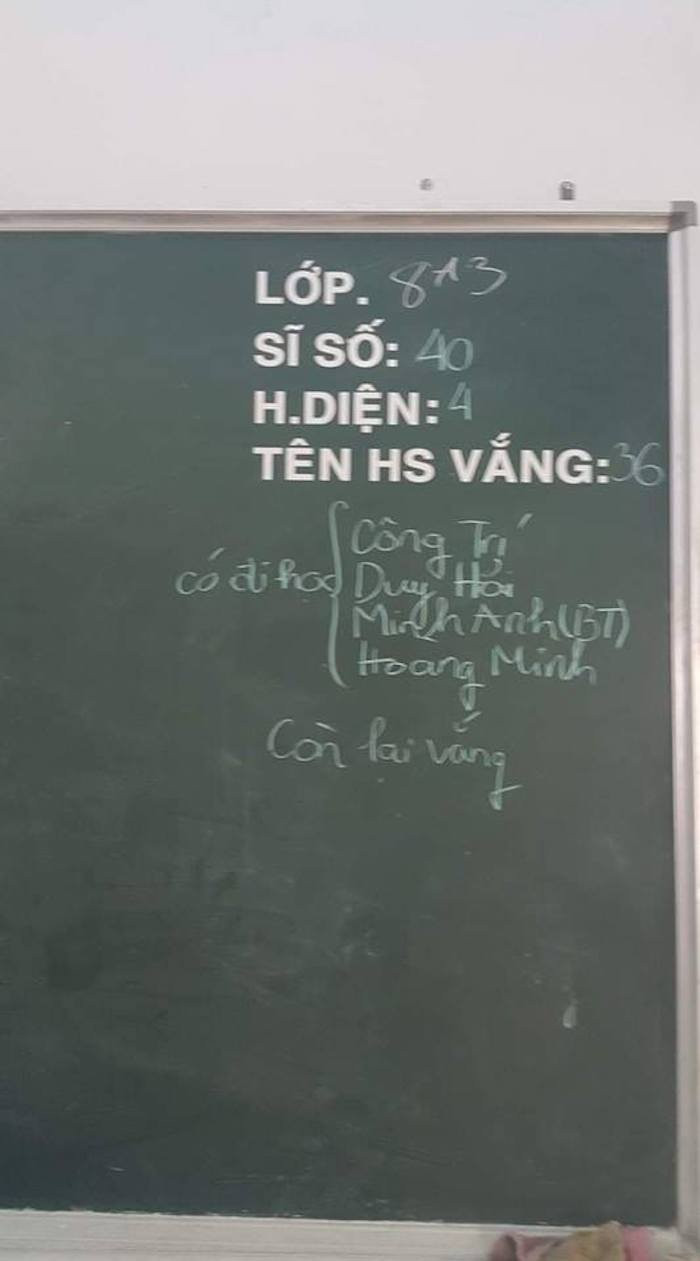 LỚP. 8A3
SĨ SỐ: 40
H.DIỆN: 4
TÊN HS VẮNG: 36
có đi học { Công Trí
Duy Hải
Minh Anh (BT)
Hoang Minh
Còn lại vắng